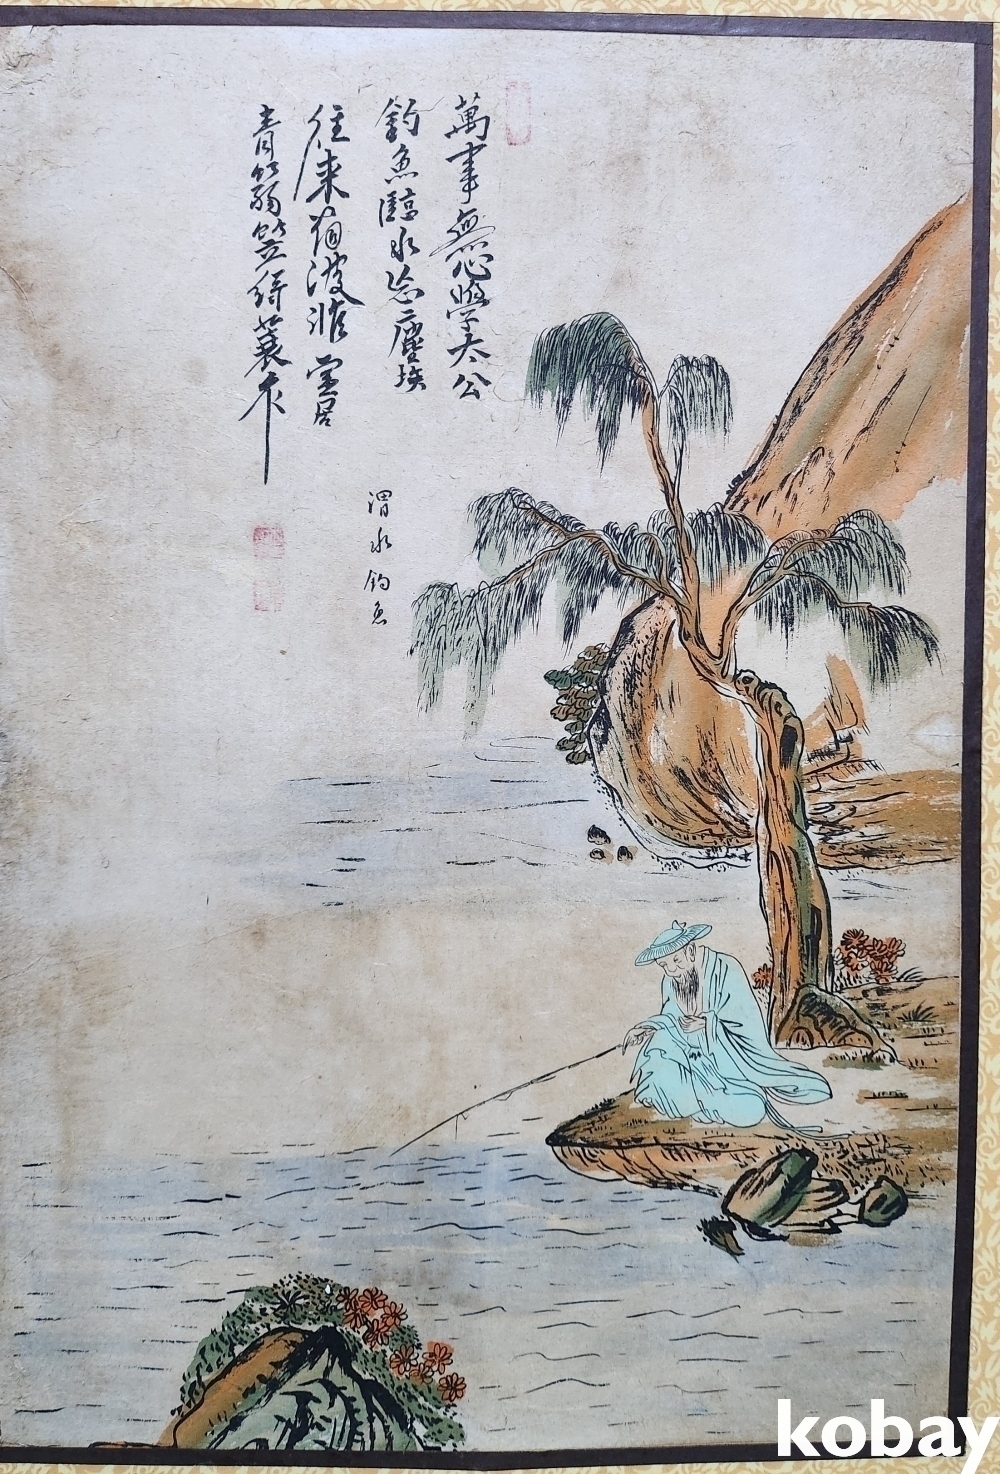 萬事無心學太公
釣魚臨水忘塵埃
往來有波非定居
青篛笠綠蓑衣
渭水釣魚
kobay